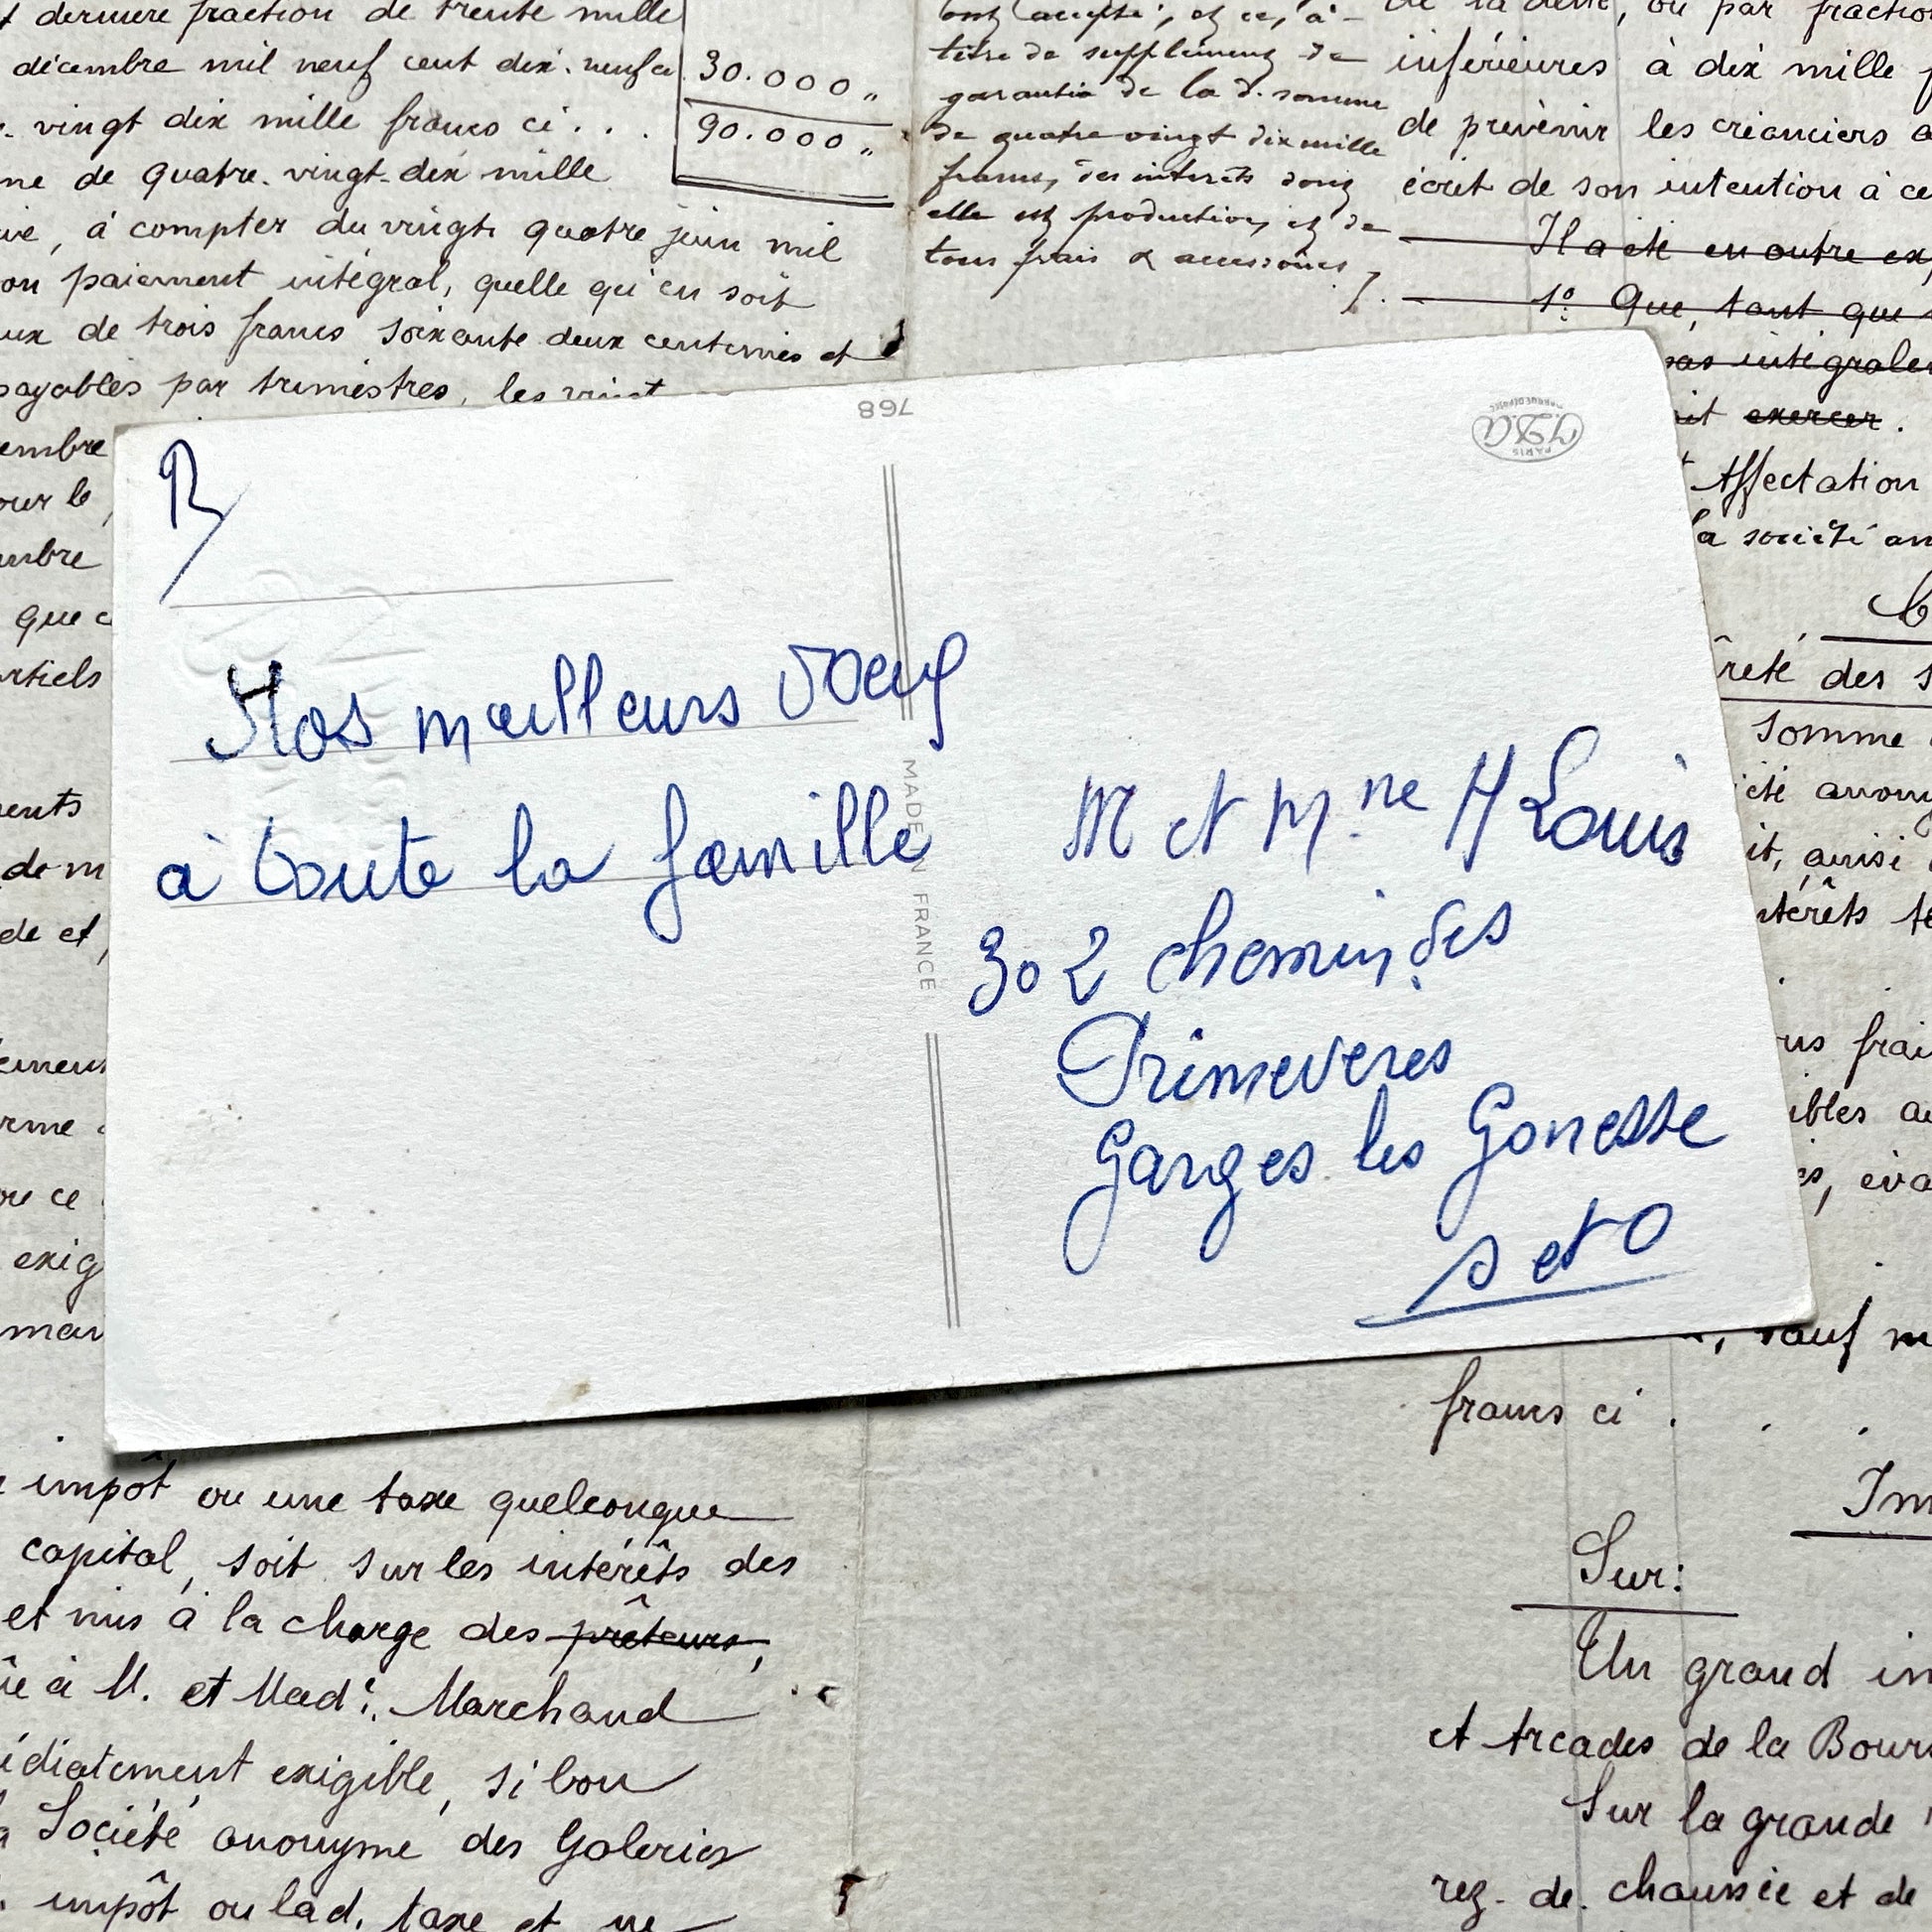 derniere fraction de trente mille
décembre mil neuf cent dix-neuf ci
30.000 "
vingt dix mille francs ci . . .
90.000 "
ne de quatre-vingt-dix mille
à compter du vingt quatre juin mil
on paiement intégral, quelle qu'en soit
ux de trois francs soixante deux centimes et
payables par trimestres, les vingt
titre de supplément de
garantie de la d. somme
de quatre vingt dix mille
francs, des intérêts dont
elle est productive, et de
tous frais & accessoires ./.
de la dette, ou par fraction
inférieures à dix mille f
de prévenir les créanciers a
écrit de son intention à ce
Il a été en outre ex
1° Que, tant que
pas intégrale
it exercer.
Affectation
la société an
embre
our le
mbre
que c
rtiels
ents
de m
de et
ement
rme
re ce
exig
man
768
J.D.G
PARIS
MARQUE DÉPOSÉE
R/
Nos meilleurs voeux
à toute la famille
MADE IN FRANCE
M et Mme H Louis
302 chemin des
Primeveres
Garges les Gonesse
S et O
reté des s
somme
été anony
it, ainsi
ntérêts
us frai
ibles au
sauf
francs ci . . .
Im
Sur:
Un grand im
et Arcades de la Bours
Sur la grande
rez-de-chaussée et de
impôt ou une taxe quelconque
capital, soit sur les intérêts des
et mis à la charge des prêteurs,
à M. et Mad. Marchand
édiatement exigible, si bon
Société anonyme des Galeries
impôt ou lad. taxe et ne